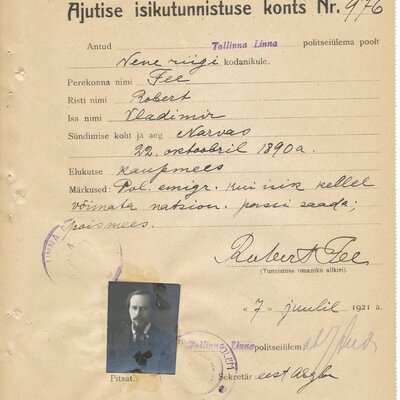 Ajutise isikutunnistuse konts Nr. 976
Antud Tallinna Linna politseiülema poolt
Vene riigi kodanikule.
Perekonna nimi Fee
Risti nimi Robert
Isa nimi Vladimir
Sündimise koht ja aeg Narvas
22. oktoobril 1890 a.
Elukutse kaupmees
Märkused: Pol. emigr. kui isik kellel
võimata natsion. passi saada;
poismees.
Robert Fee
(Tunnistuse omaniku allkiri)
„7" juulil 1921 a.
Tallinna Linna politseiülem
Pitsat.
Sekretär